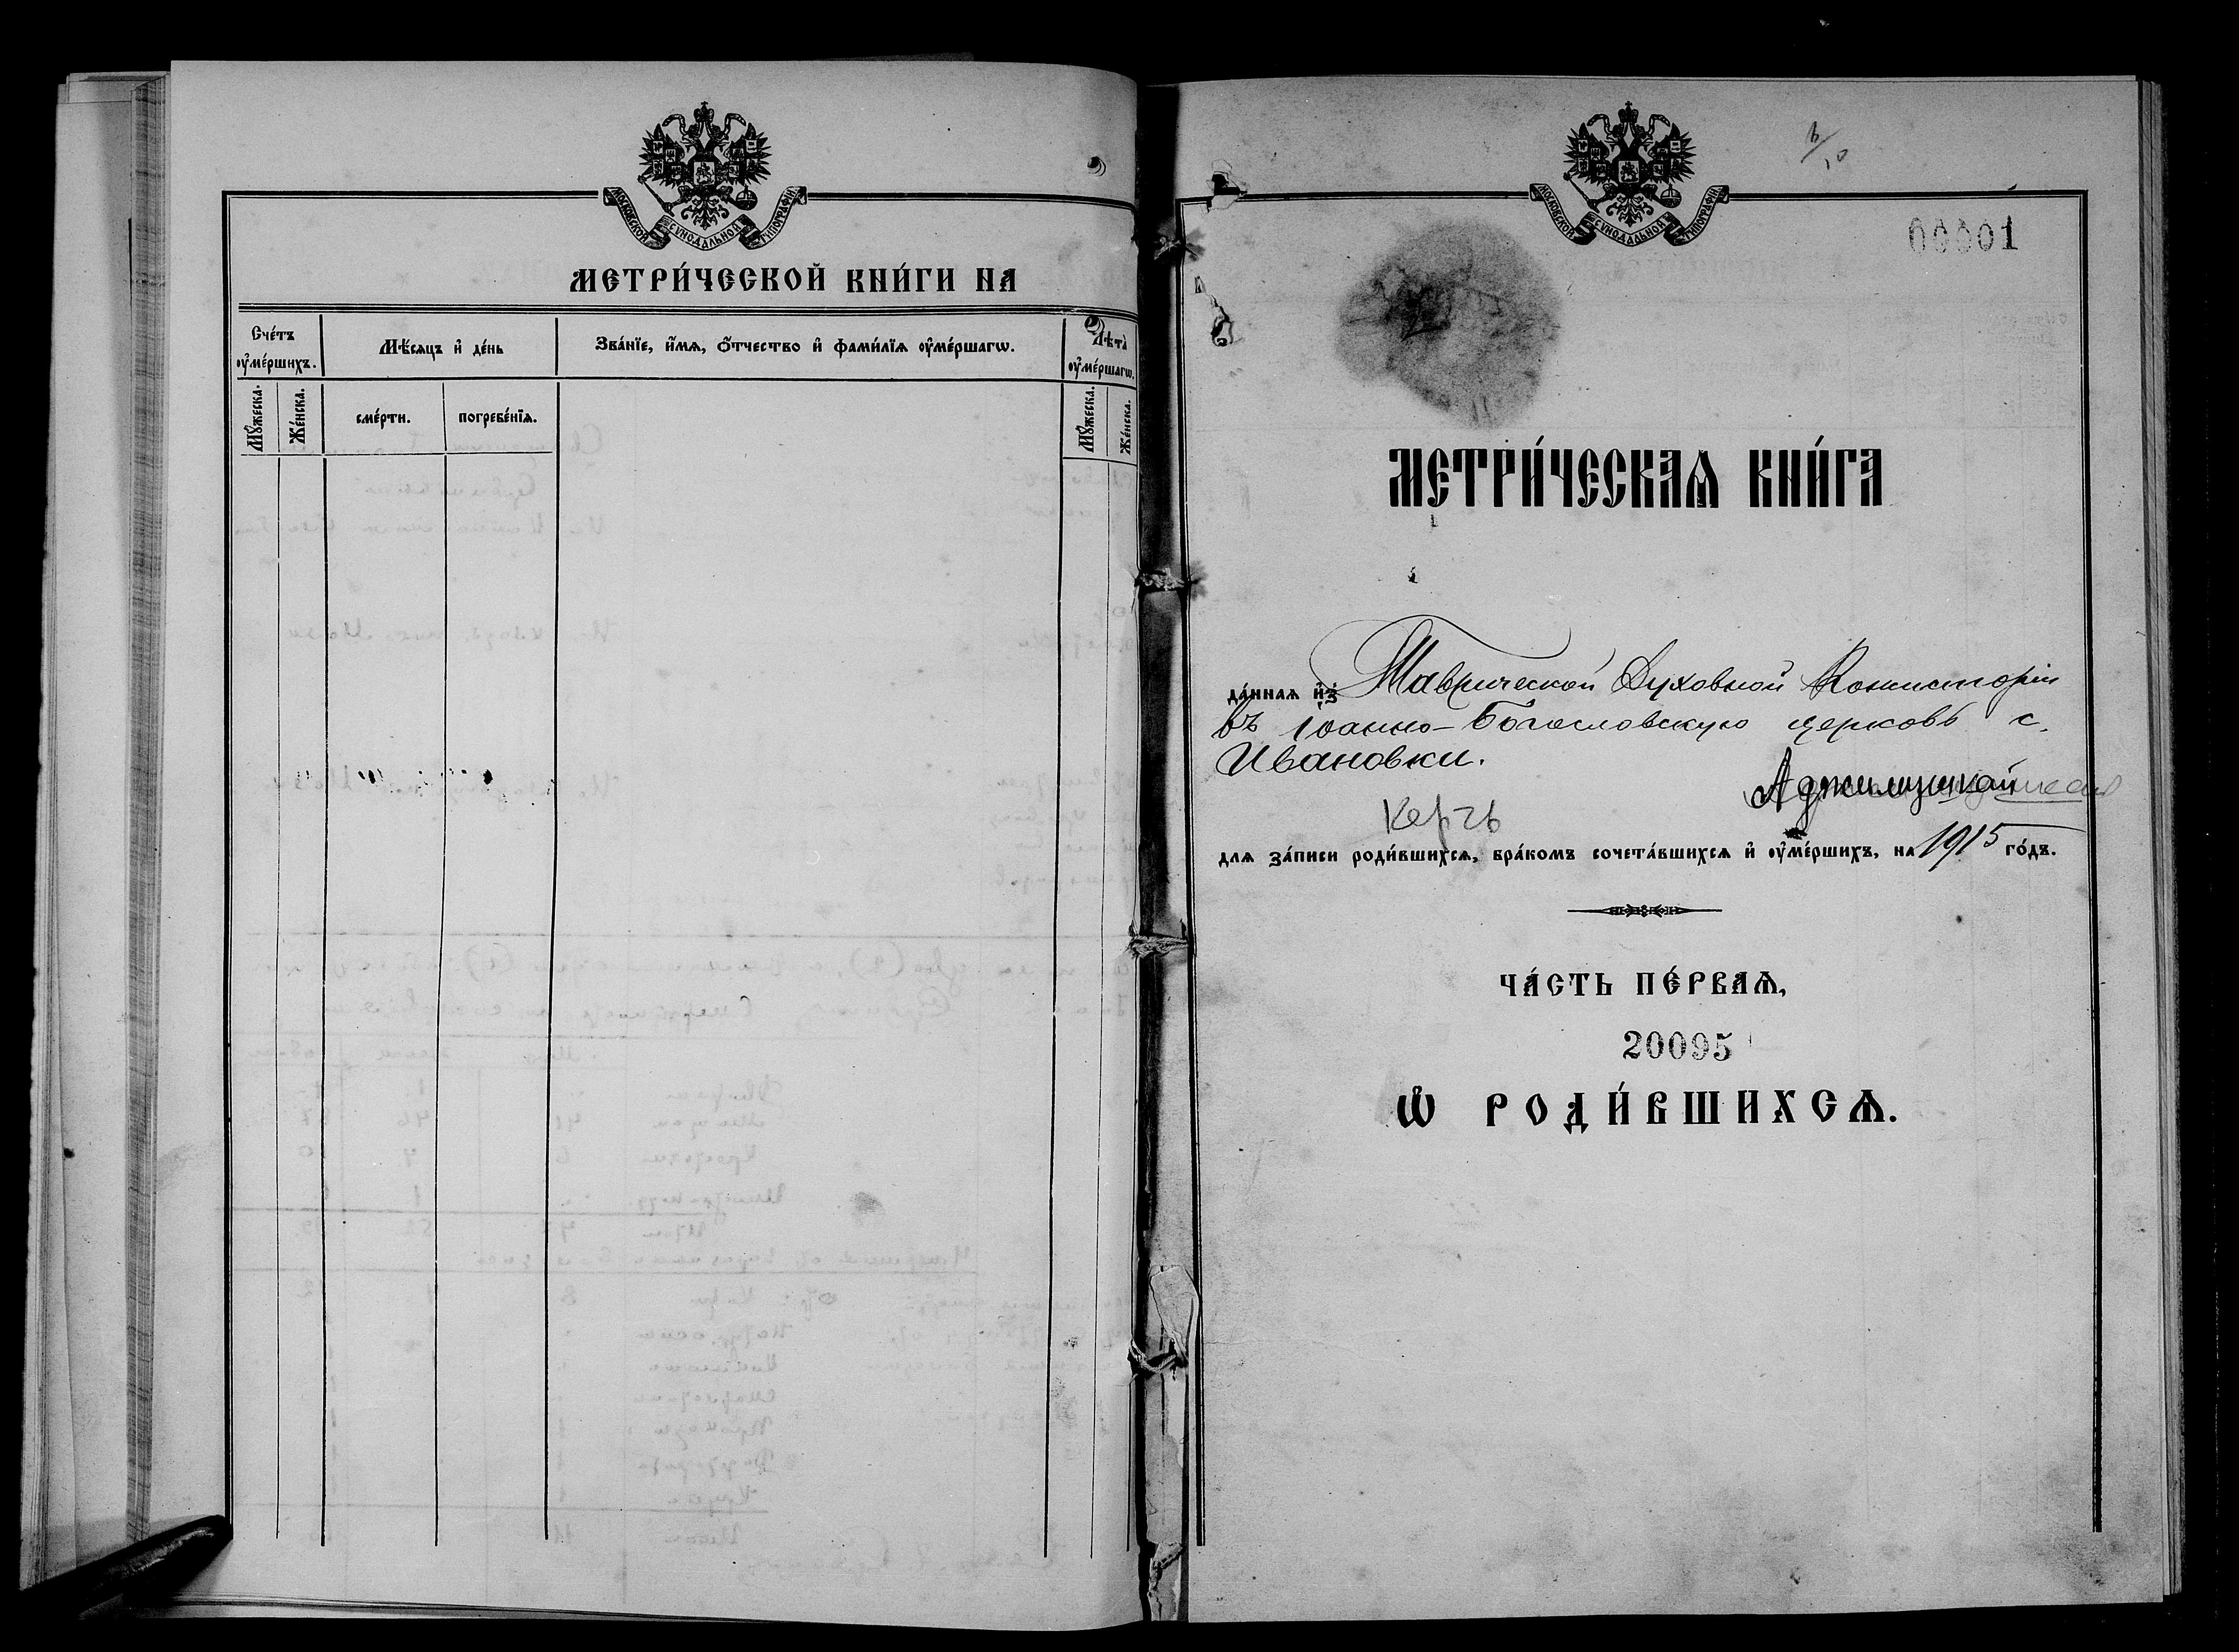 МОСКОВСКОЙ СѴНОДАЛЬНОЙ ТИПОГРАФІИ
МЕТРИ́ЧЕСКОЙ КНИ́ГИ НА
Сче́тъ ᲂу҆ме́ршихъ.
Мѣ́сяцъ и҆ де́нь
Зва́нїе, и҆́мѧ, ѻ҆́тчество и҆ фами́лїѧ ᲂу҆ме́ршагѡ.
Лѣта̀ ᲂу҆ме́ршагѡ.
Мꙋ́жеска.
Же́нска.
сме́рти.
погребе́нїѧ.
Мꙋ́жеска.
Же́нска.
МОСКОВСКОЙ СѴНОДАЛЬНОЙ ТИПОГРАФІИ
00001
МЕТРИ́ЧЕСКАѦ КНИ́ГА
да́ннаѧ и҆з̾ Таврической Духовной Консисторіи
въ Іоанно-Богословскую церковь с.
Ивановки.
Аджимушкай
Керчь
для за́писи роди́вшихсѧ, бра́комъ сочета́вшихсѧ и҆ ᲂу҆ме́ршихъ, на 1915 го́дъ.
ЧА́СТЬ ПЕ́РВАѦ,
20095
Ѡ҆ РОДИ́ВШИХСѦ.